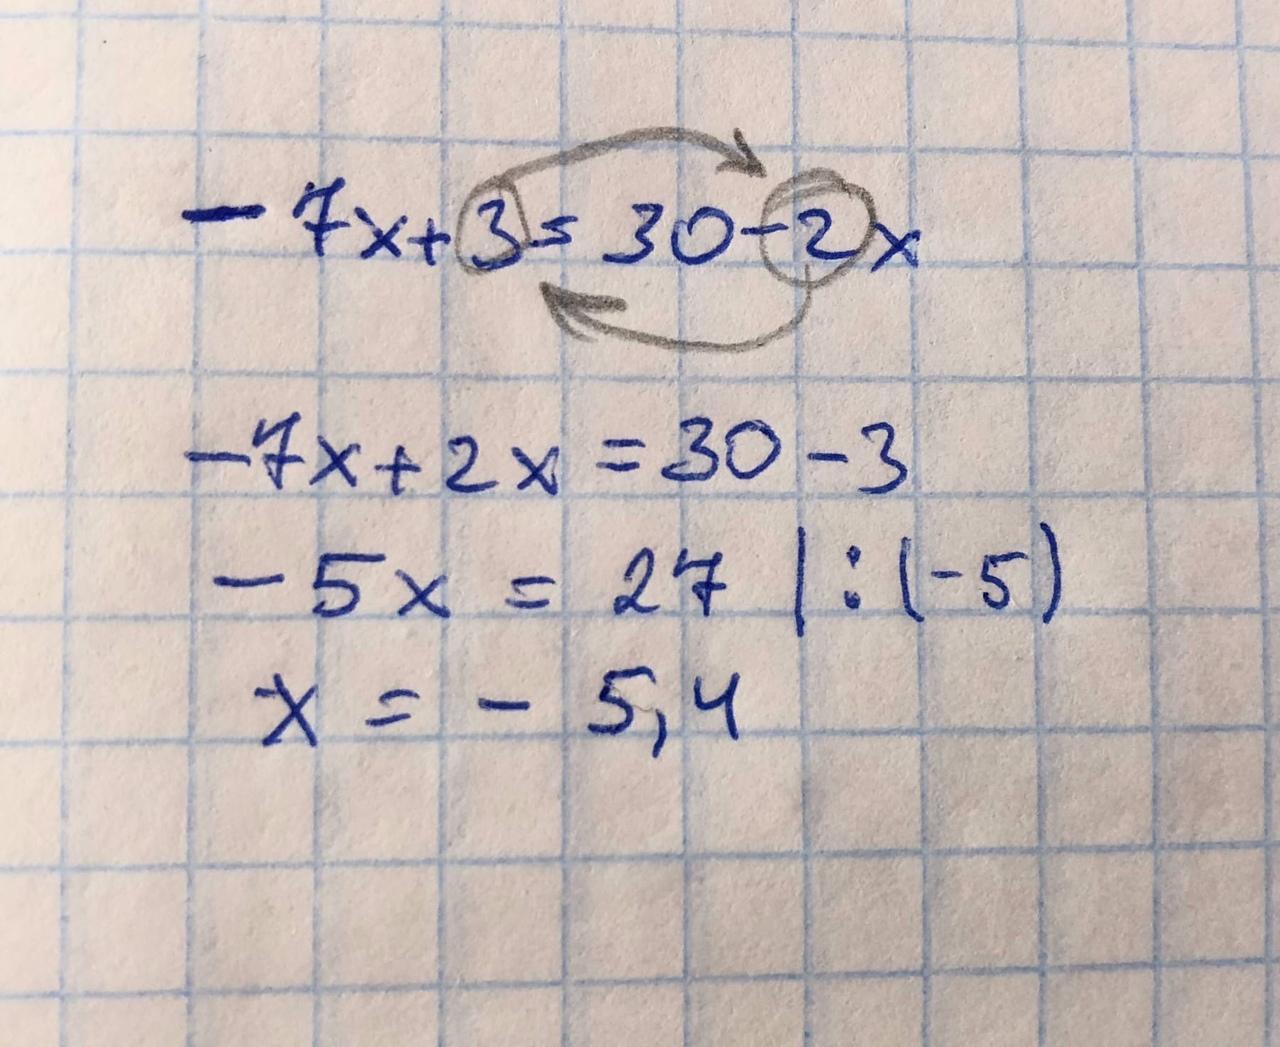 -7x+3=30-2x
-7x+2x=30-3
-5x=27 |:(-5)
x=-5,4